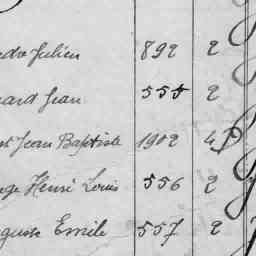 Julien 892 2
Jean 555 2
Jean Baptiste 1902 4
Henri Louis 556 2
Emile 557 2